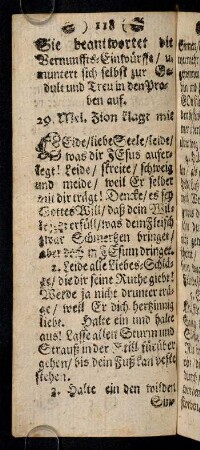 ) 118 (
Sie beantwortet die
Vernunffts-Einwürffe/
muntert sich selbst zur Ge-
dult und Treu in den Pro-
ben auf.
29. Mel. Zion klagt mit
Leide/ liebe Seele/ leide/
was dir JEsus aufer-
legt! Leide/ streite/ schweig
und meide/ weil Er selber
mit dir trägt! Dencke/ es sey
Gottes Will/ daß dein Wil-
erfüll/ was dem Fleisch
zwar Schmertzen bringet/
aber JEsum dringet.
2. Leide alle Liebes-Schlä-
ge/ die dir seine Ruthe giebt!
Werde ja nicht drunter trä-
ge/ weil Er dich hertzinnig
liebt. Halte ein und halte
aus! Lasse allen Sturm und
Strauß in der Still fürüber
gehen/ bis dein Fuß kan veste
stehen.
3. Halte ein den wilden